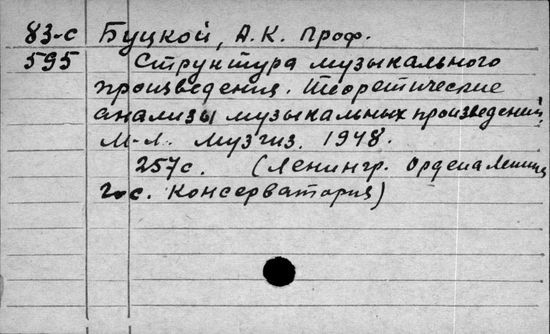 83-с Буцкой, А.К. Проф.
595 Структура музыкального
произведения. Теоретические
анализы музыкальных произведений
М-Л. Музгиз. 1948.
257с. (Ленингр. Ордена Ленина
Гос. Консерватория)